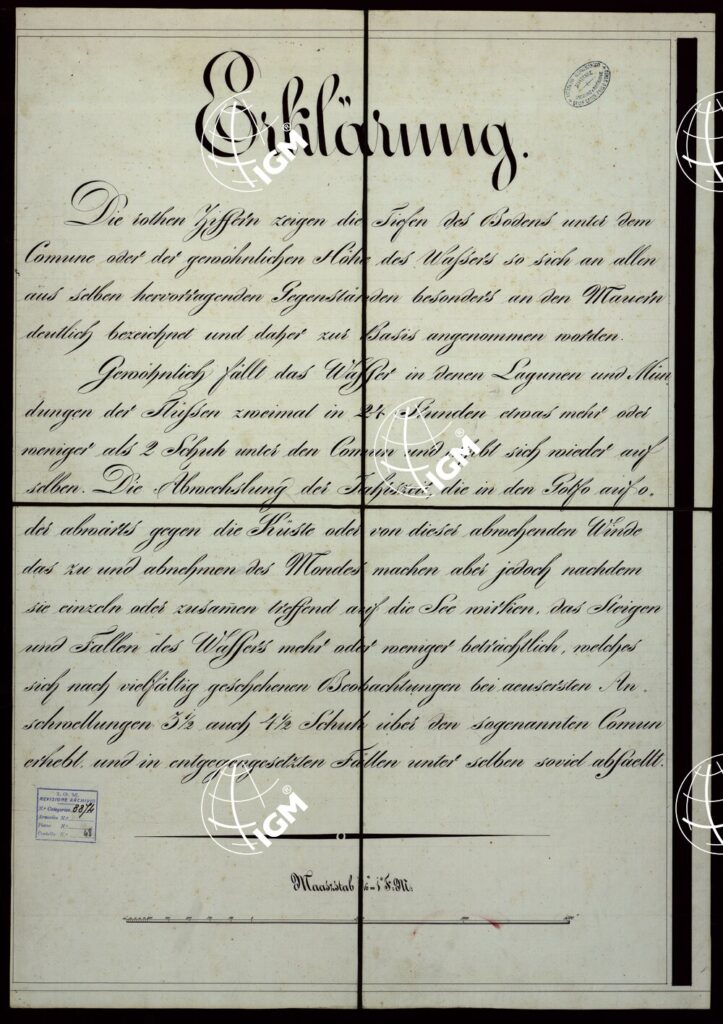 Erklärung.
Die rothen Ziffern zeigen die Tiefen des Bodens unter dem
Comune oder der gewöhnlichen Höhe des Waßers so sich an allen
aus selben hervorragenden Gegenständen besonders an den Mauern
deutlich bezeichnet und daher zur Basis angenommen worden.
Gewöhnlich fällt das Waßer in denen Lagunen und Mün-
dungen der Flüssen zweimal in 24 Stunden etwas mehr oder
weniger als 2 Schuh unter den Comun und hebt sich wieder auf
selben. Die Abwechslung der Jahrszeit, die in den Golfo auf o.
der abwärts gegen die Küste oder von dieser abwehenden Winde
das zu und abnehmen des Mondes machen aber jedoch nachdem
sie einzeln oder zusam̄en treffend auf die See wirken, das Steigen
und Fallen des Waßers mehr oder weniger beträchtlich, welches
sich nach vielfältig geschehenen Beobachtungen bei aeusersten An-
schwellungen 3½ auch 4½ Schuh über den sogenannten Comun
erhebt, und in entgegengesetzten Fällen unter selben soviel abfaellt.
I. G. M.
REVISIONE ARCHIVIO
N.° Categorico 8874
Armadio N.°
N.°
Cartella N.° 48
Maaszstab
IGM
IGM
IGM